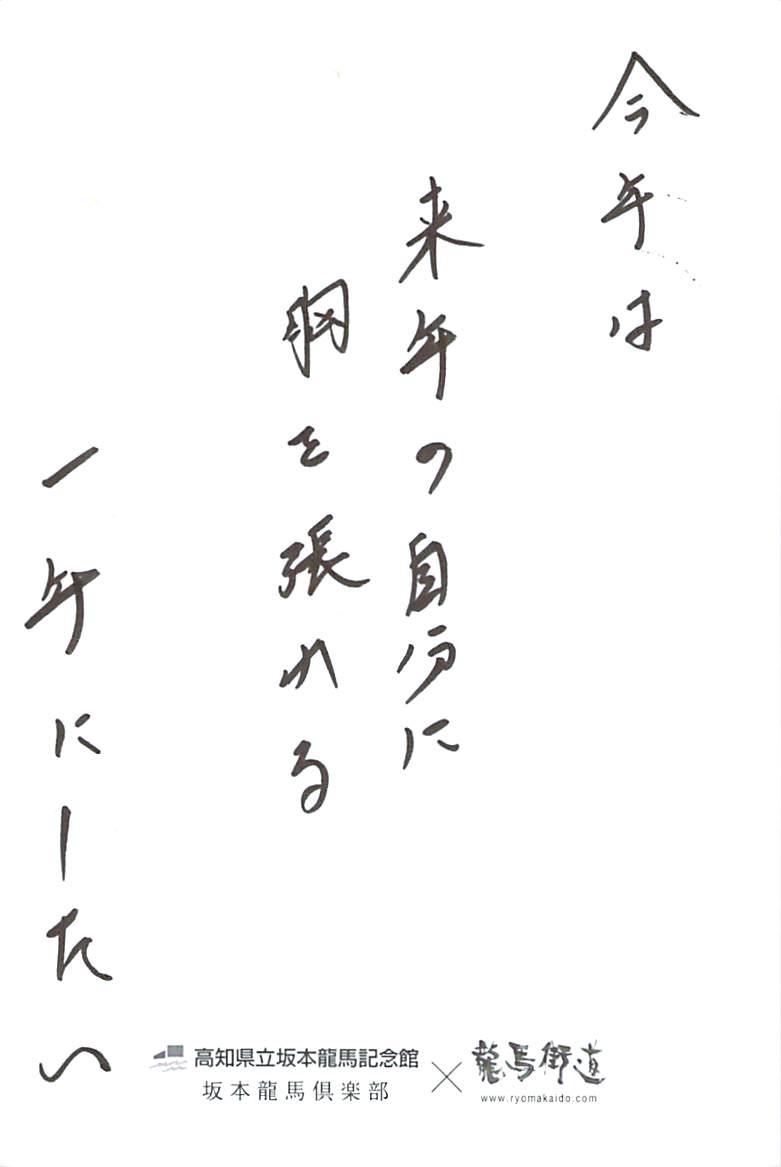 今年は
来年の自分に
胸を張れる
一年にしたい
高知県立坂本龍馬記念館
坂本龍馬倶楽部
×
龍馬街道
www.ryomakaido.com